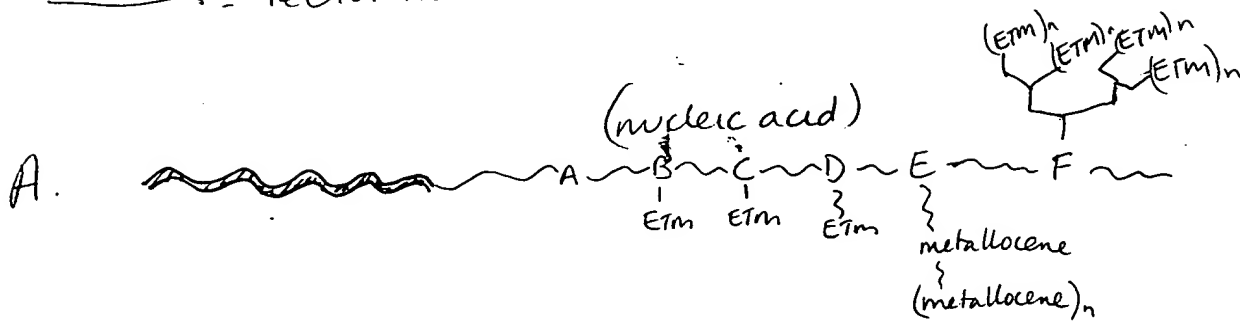 (ETM)n (ETM)n (ETM)n (ETM)n
(nucleic acid)
A. A B C D E F
ETM ETM ETM
metallocene
(metallocene)n